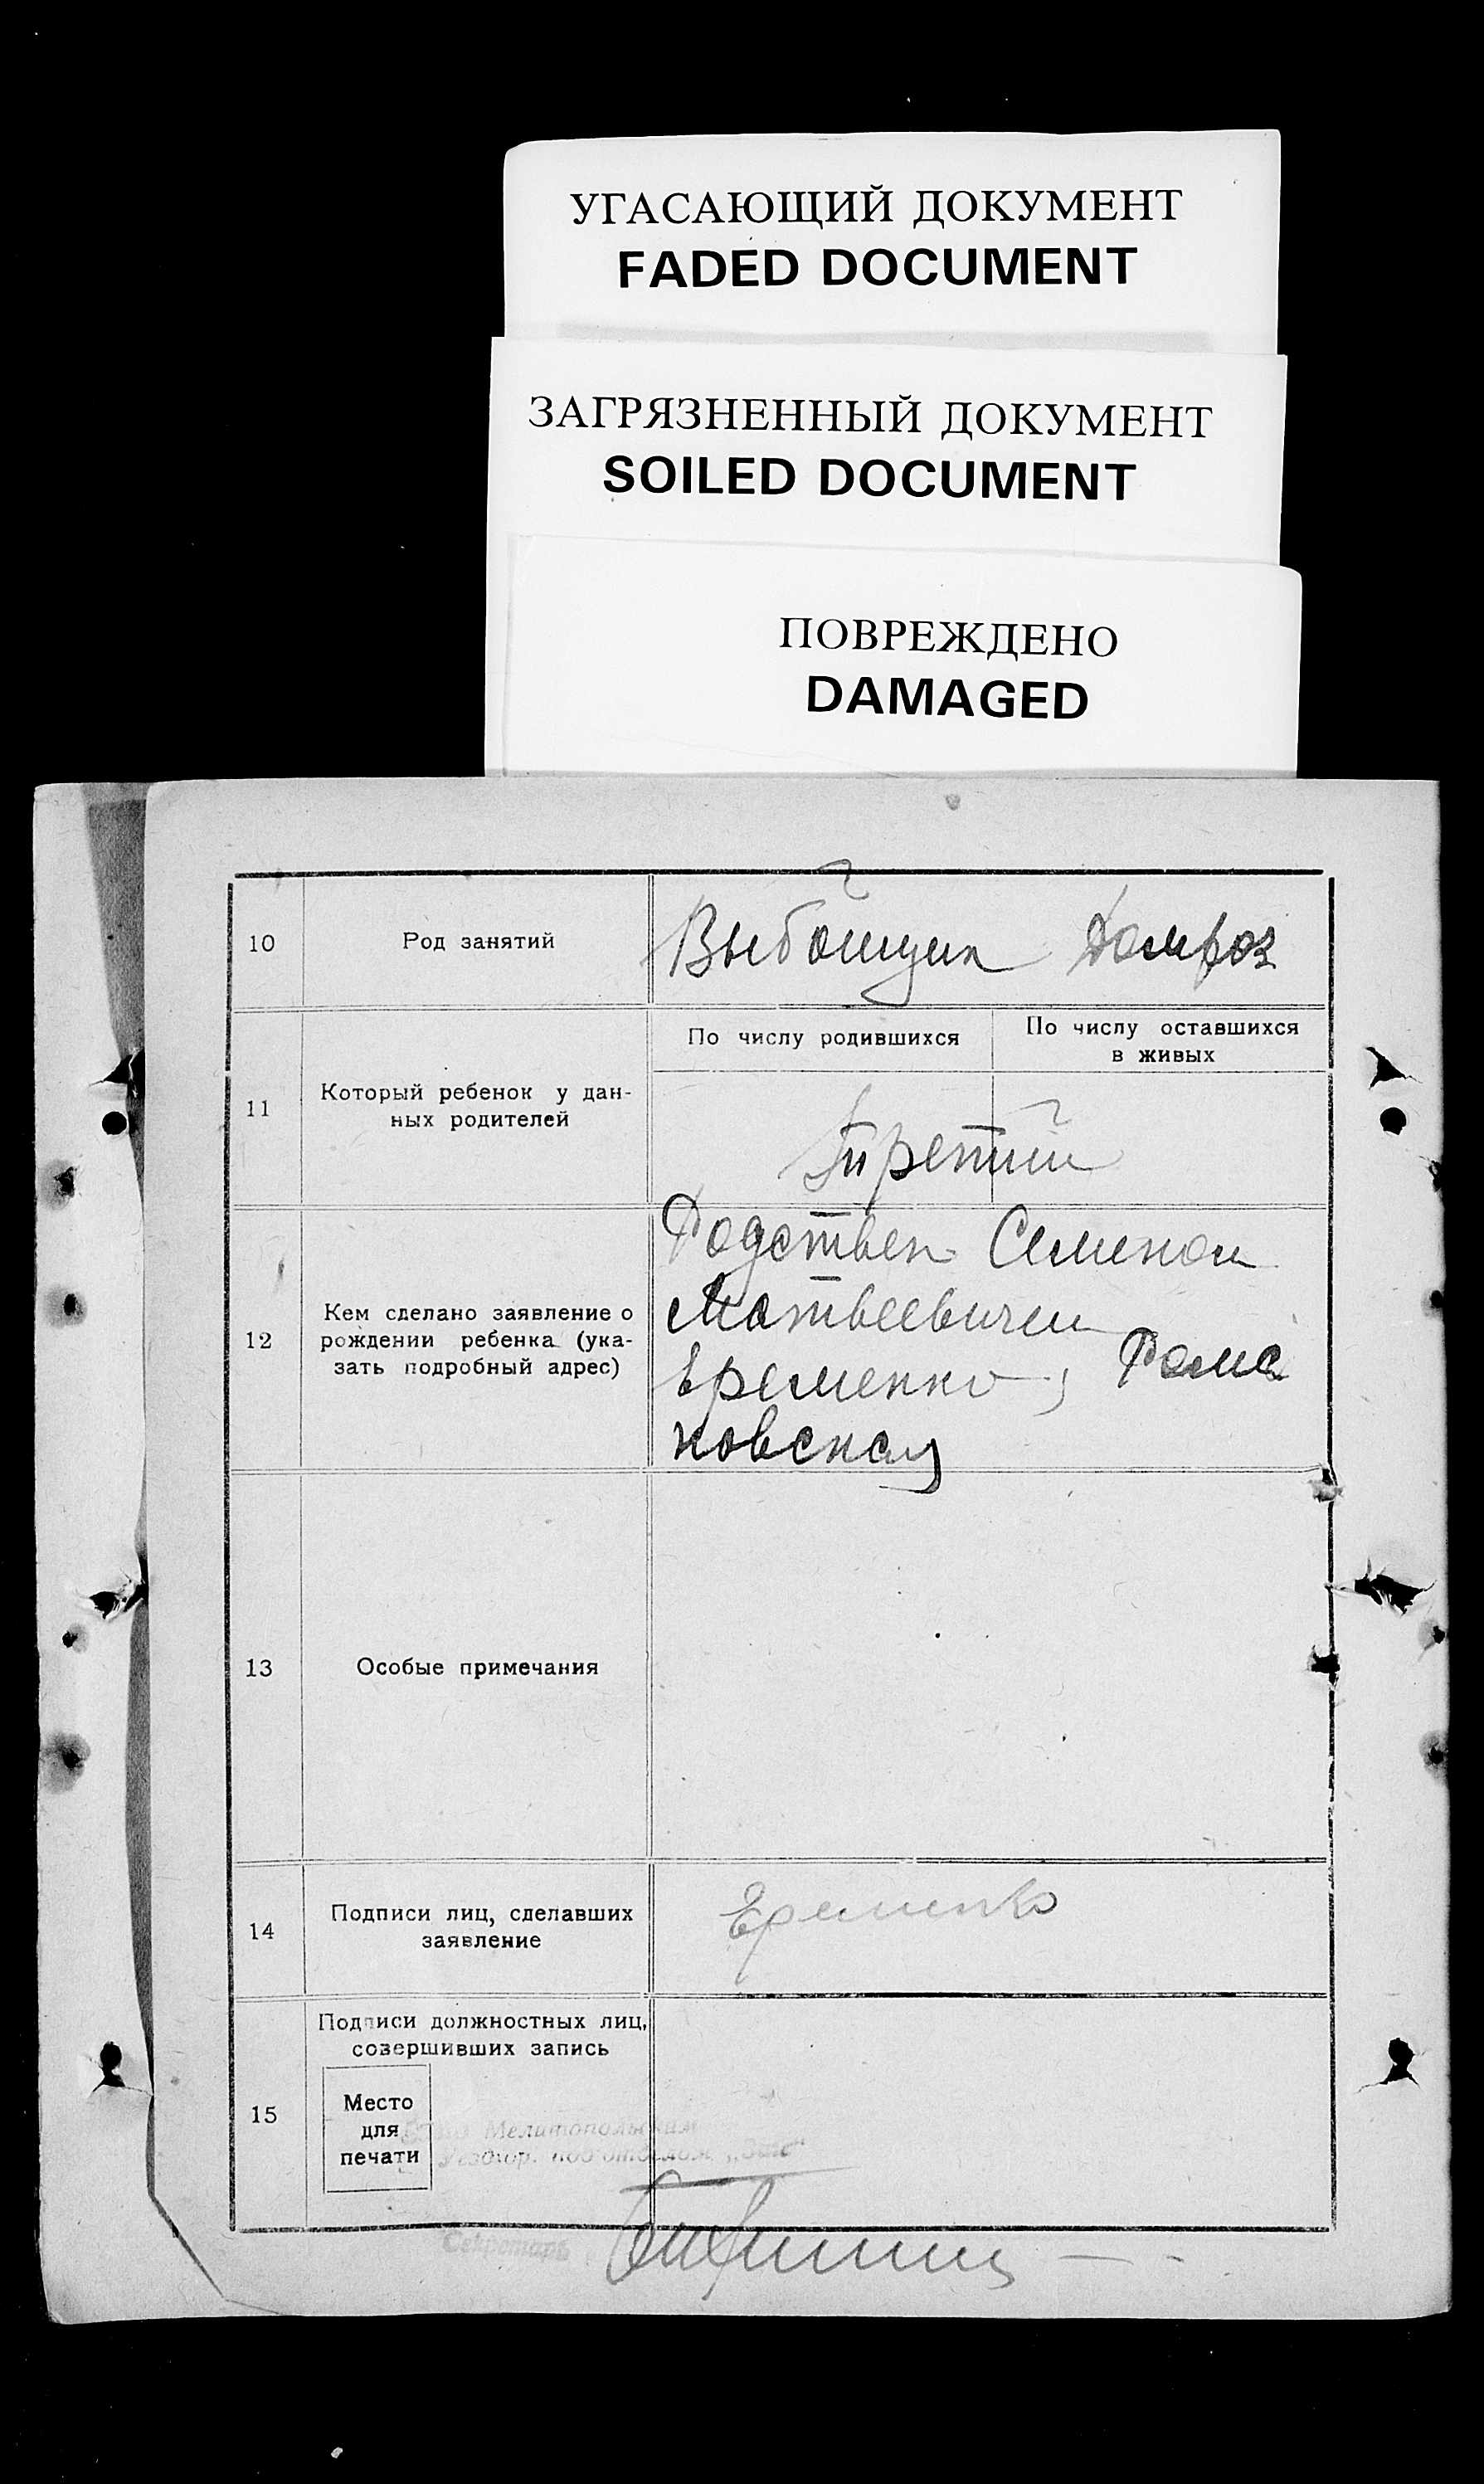 УГАСАЮЩИЙ ДОКУМЕНТ
FADED DOCUMENT
ЗАГРЯЗНЕННЫЙ ДОКУМЕНТ
SOILED DOCUMENT
ПОВРЕЖДЕНО
DAMAGED
10 Род занятий Выбойщик Домроз
11 Который ребенок у дан-
ных родителей
По числу родившихся
По числу оставшихся
в живых
Третий
12 Кем сделано заявление о
рождении ребенка (ука-
зать подробный адрес)
Родствен Семеном
Матвеевичем
Еременко, Рома
новская
13 Особые примечания
14 Подписи лиц, сделавших
заявление
Еременко
15 Подписи должностных лиц,
совершивших запись
Место
для
печати
Мелитопольским
под'отделом
Секретарь